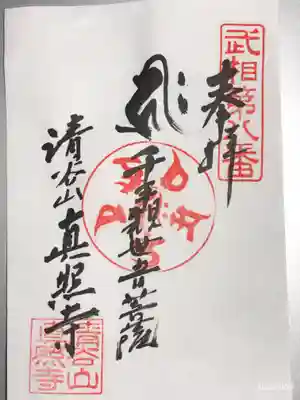 武相第八番
奉拝
千手観世音菩薩
清谷山真照寺
清谷山
真照寺